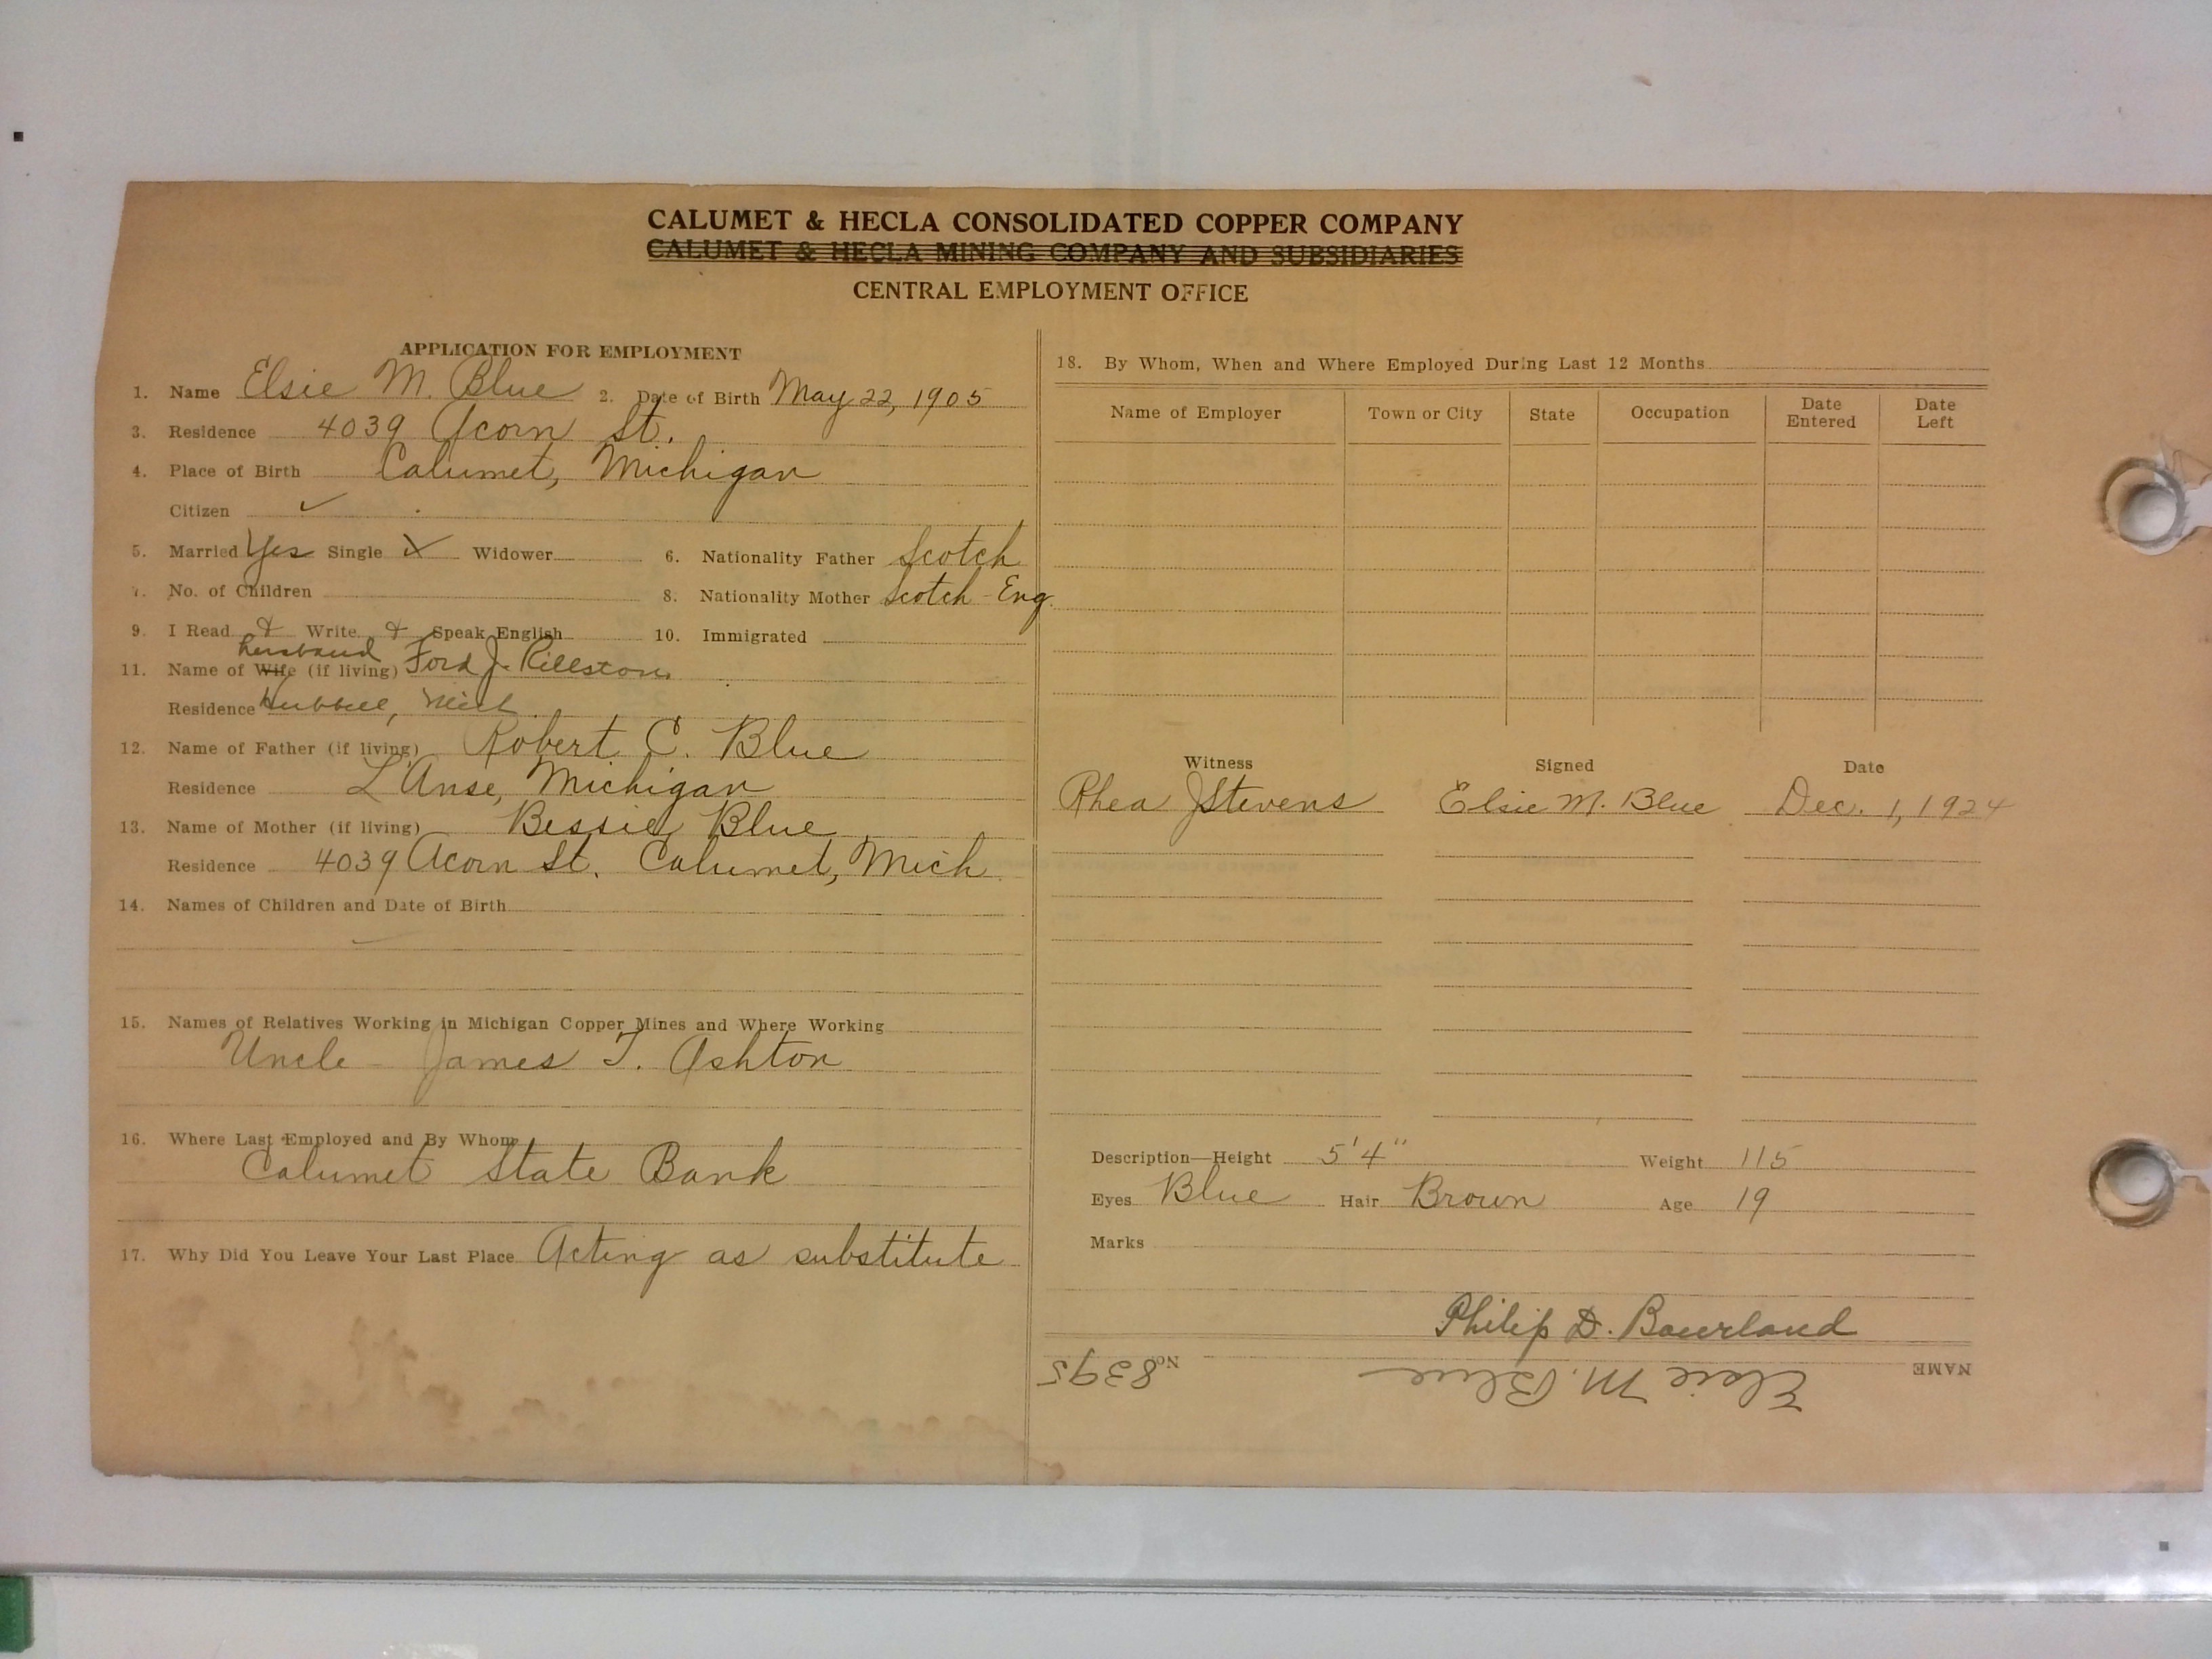 CALUMET & HECLA CONSOLIDATED COPPER COMPANY
CALUMET & HECLA MINING COMPANY AND SUBSIDIARIES
CENTRAL EMPLOYMENT OFFICE
APPLICATION FOR EMPLOYMENT
1. Name Elsie M. Blue 2. Date of Birth May 22, 1905
3. Residence 4039 Acorn St.
4. Place of Birth Calumet, Michigan
Citizen ✓
5. Married Yes Single X Widower 6. Nationality Father Scotch
7. No. of Children 8. Nationality Mother Scotch-Eng.
9. I Read & Write & Speak English 10. Immigrated
husband
11. Name of Wife (if living) Ford J.
Residence Hubbell, Mich
12. Name of Father (if living) Robert C. Blue
Residence L'Anse, Michigan
13. Name of Mother (if living) Bessie Blue
Residence 4039 Acorn St. Calumet, Mich
14. Names of Children and Date of Birth
15. Names of Relatives Working in Michigan Copper Mines and Where Working
Uncle - James T. Ashton
16. Where Last Employed and By Whom
Calumet State Bank
17. Why Did You Leave Your Last Place Acting as substitute
18. By Whom, When and Where Employed During Last 12 Months
Name of Employer Town or City State Occupation Date Entered Date Left
Witness Signed Date
Rhea J Stevens Elsie M. Blue Dec. 1, 1924
Description—Height 5'4" Weight 115
Eyes Blue Hair Brown Age 19
Marks
Philip D. Bourland
NAME Elsie M. Blue No. 8395